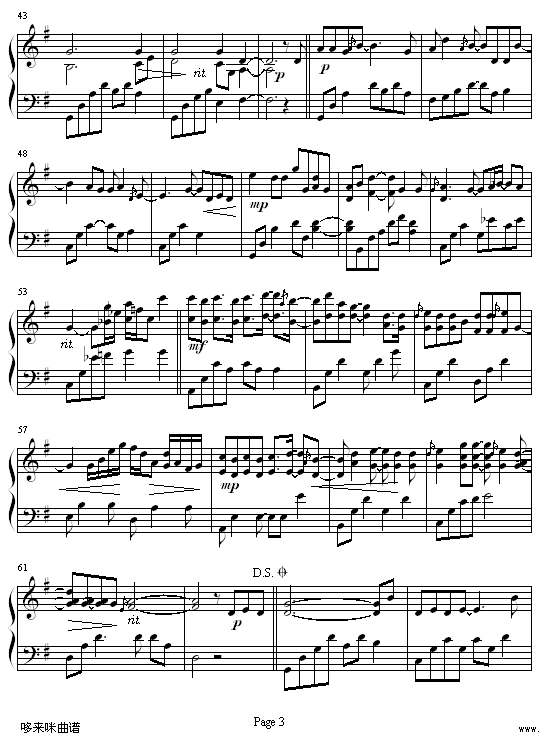 43
rit.
p
p
48
mp
53
rit.
mf
57
mp
61
D.S.
rit.
p
Page 3
哆来咪曲谱
www.